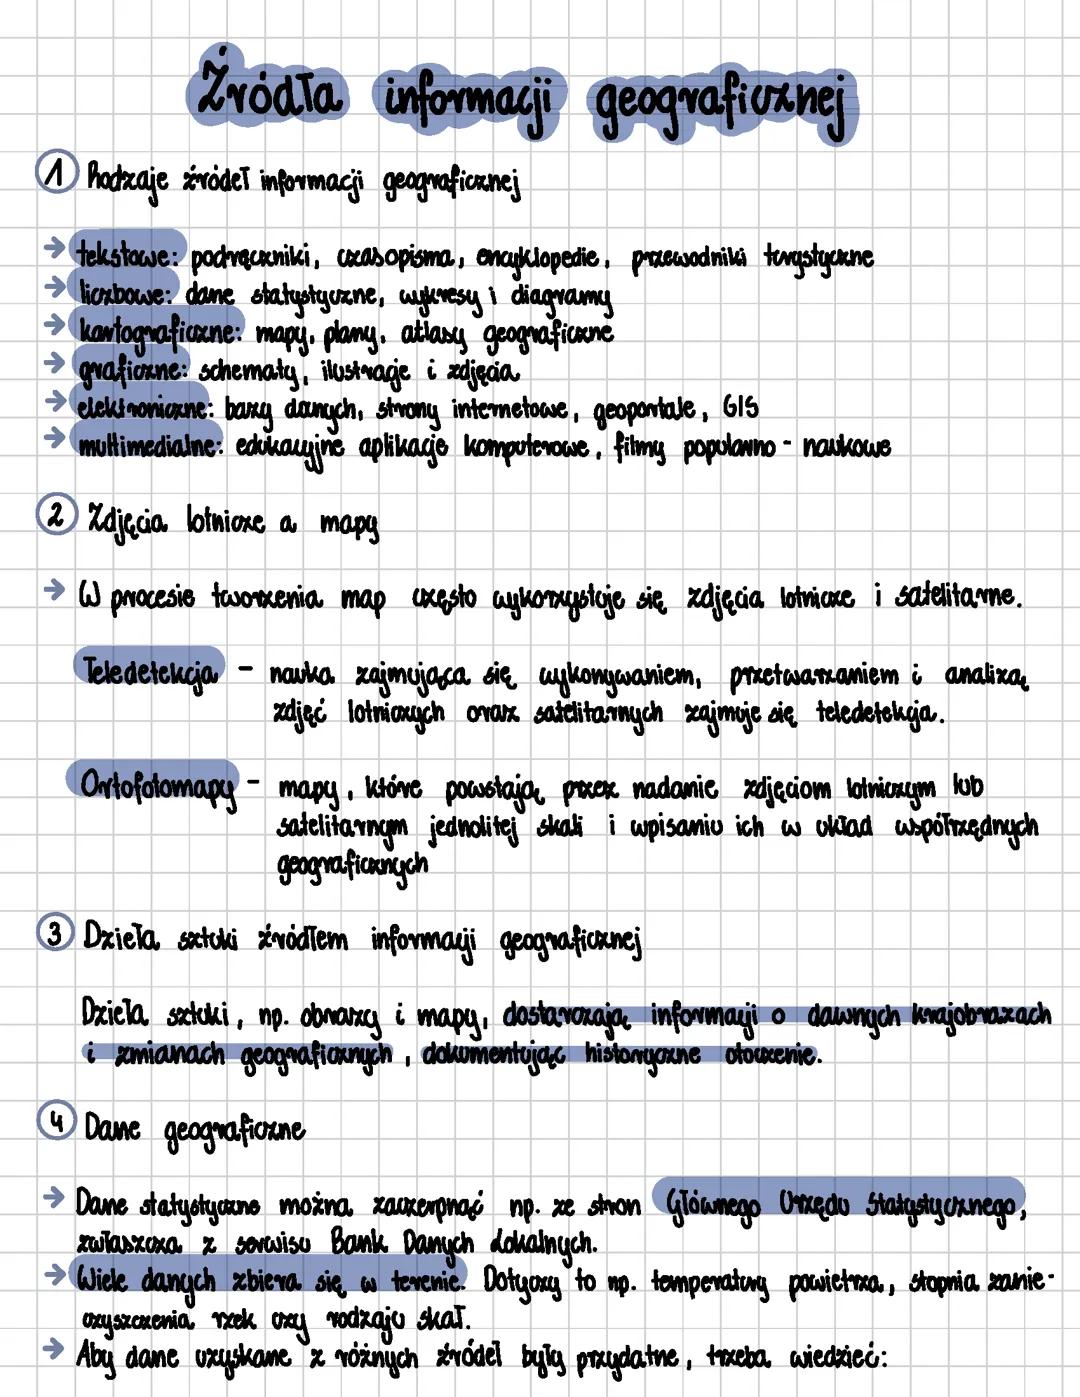 Źródła informacji geograficznej
1 Rodzaje źródeł informacji geograficznej
→ tekstowe: podręczniki, czasopisma, encyklopedie, przewodniki turystyczne
→ liczbowe: dane statystyczne, wykresy i diagramy
→ kartograficzne: mapy, plany, atlasy geograficzne
→ graficzne: schematy, ilustracje i zdjęcia
→ elektroniczne: bazy danych, strony internetowe, geoportale, GIS
→ multimedialne: edukacyjne aplikacje komputerowe, filmy popularno - naukowe
2 Zdjęcia lotnicze a mapy
→ W procesie tworzenia map często wykorzystuje się zdjęcia lotnicze i satelitarne.
Teledetekcja - nauka zajmująca się wykonywaniem, przetwarzaniem i analizą
zdjęć lotniczych oraz satelitarnych zajmuje się teledetekcja.
Ortofotomapy - mapy, które powstają przez nadanie zdjęciom lotniczym lub
satelitarnym jednolitej skali i wpisaniu ich w układ współrzędnych
geograficznych
3 Dzieła sztuki źródłem informacji geograficznej
Dzieła sztuki, np. obrazy i mapy, dostarczają informacji o dawnych krajobrazach
i zmianach geograficznych, dokumentując historyczne otoczenie.
4 Dane geograficzne
→ Dane statystyczne można zaczerpnąć np. ze stron Głównego Urzędu Statystycznego,
zwłaszcza z serwisu Bank Danych Lokalnych.
→ Wiele danych zbiera się w terenie. Dotyczy to np. temperatury powietrza, stopnia zanie-
czyszczenia rzek czy rodzaju skał.
→ Aby dane uzyskane z różnych źródeł były przydatne, trzeba wiedzieć: